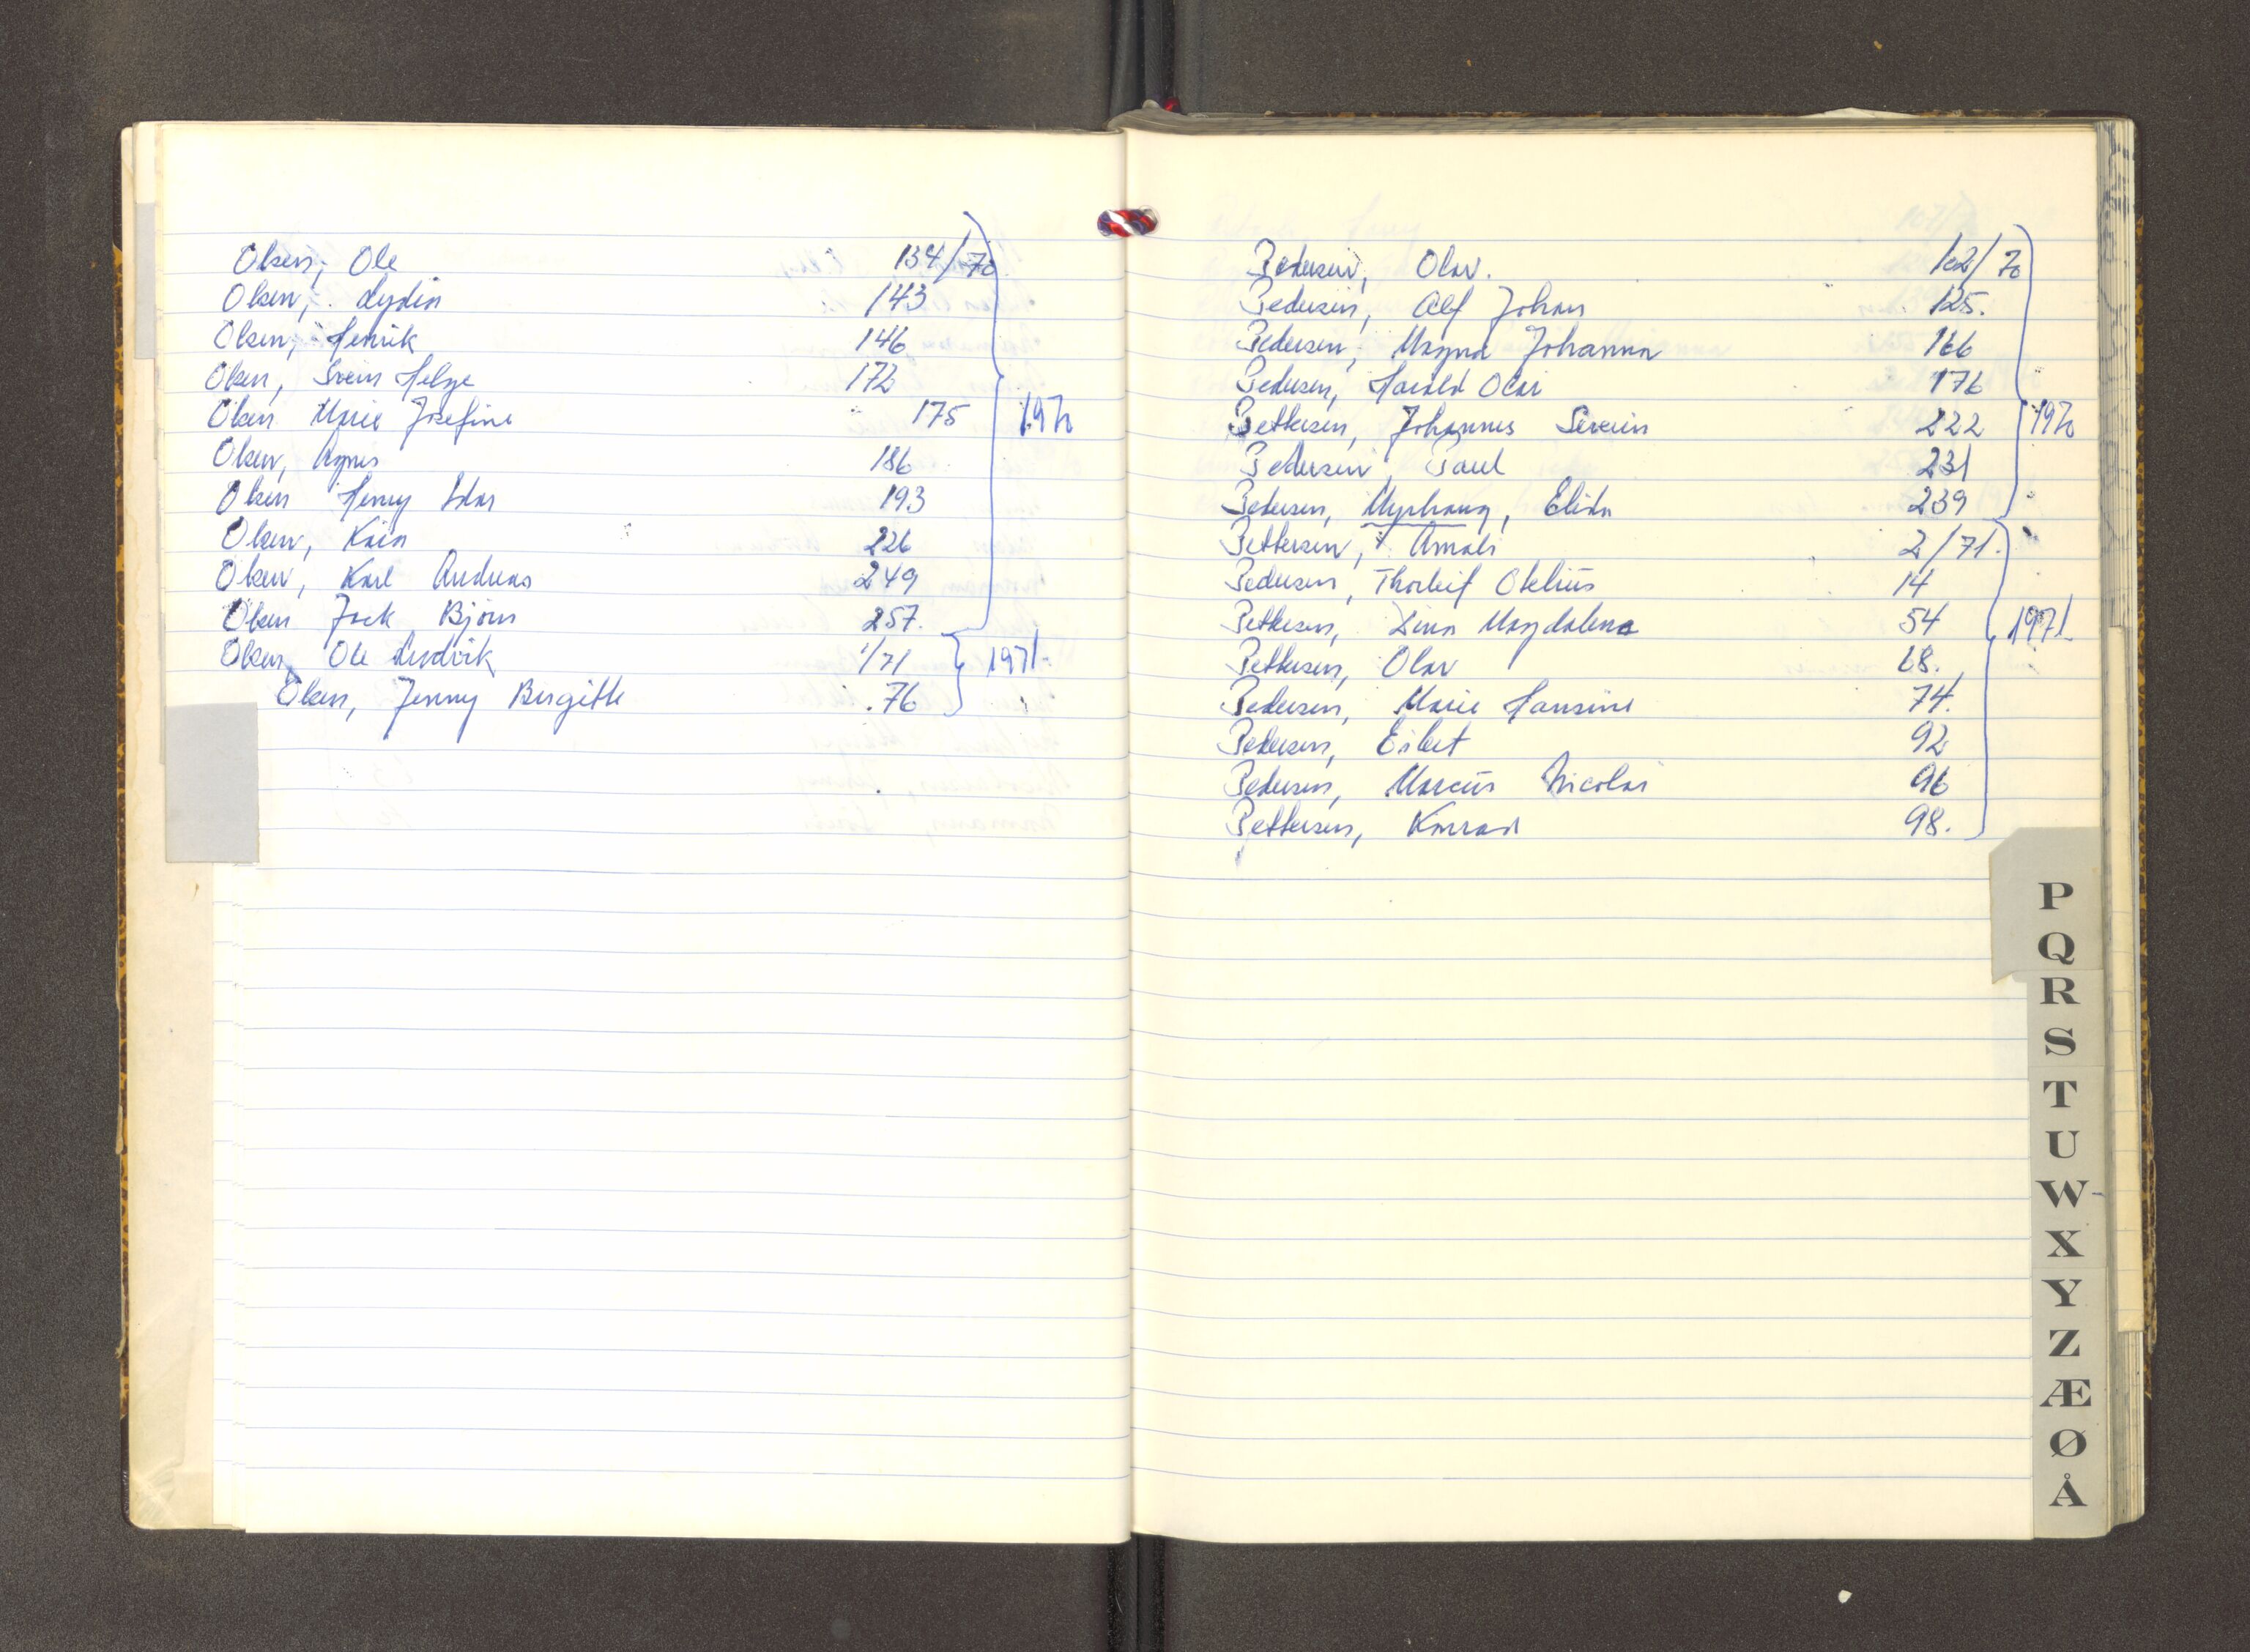 Olsen, Ole 134/70
Olsen, Lydia 143
Olsen, Henrik 146
Olsen, Svein Helge 172
Olsen Marie Josefine 175 1970
Olsen, Agnes 186
Olsen Henry Idar 193
Olsen, Kaia 226
Olsen, Karl Andreas 249
Olsen Jack Bjørn 257.
Olsen, Ole Ludvik 1/71 1971.
Olsen, Jenny Birgitte 76
Pedersen, Olav. 102/70
Pedersen, Alf Johan 125.
Pedersen, Magna Johanna 166
Pedersen, Harald Olai 176
Pettersen, Johannes Severin 222 1970
Pedersen, Paul 231
Pedersen, Myrhaug, Elida 239
Pettersen, Amali 2/71.
Pedersen, Thorleif Otelius 14
Pettersen, Lina Magdalena 54 1971.
Pettersen, Olav 68.
Pedersen, Marie Hansine 74.
Pedersen, Eilert 92
Pedersen, Marcus Nicolai 96
Pettersen, Konrad 98.
P
Q
R
S
T
U
W
X
Y
Z
Æ
Ø
Å